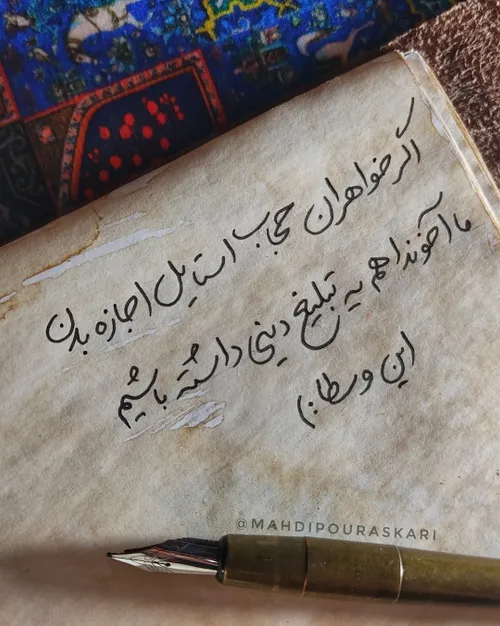 اگر خواهران حجاب استایل اجازه بدن
ما آخوندا هم یه تبلیغ دینی داشته باشیم
این وسطا :)
@MAHDIPOURASKARI